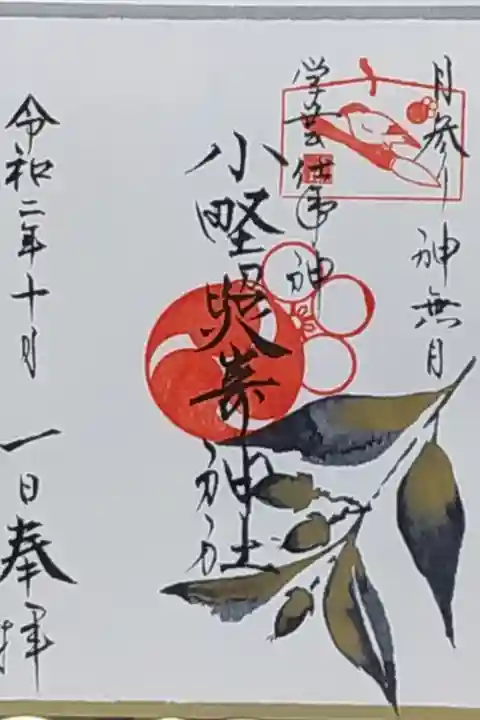 月参り 神無月
学芸仕事神
小野照崎神社
令和二年十月 一日奉拝